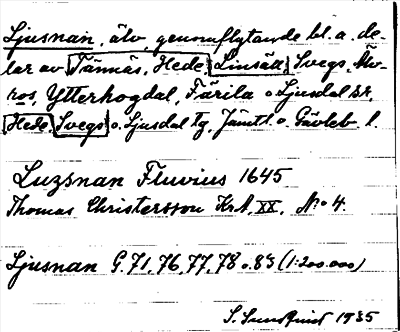 Ljusnan, älv, genomflytande bl. a. de-
lar av Tännäs, Hede, Linsäll, Svegs, Älv-
ros, Ytterhogdal, Färila o Ljusdal sr,
Hede, Svegs o. Ljusdal tg, Jämtl. o. Gävleb. l.
Luzsnan Fluvius 1645
Thomas Christersson KrA, XX, No 4.
Ljusnan G. 71, 76, 77, 78 o. 83 (1:200.000)
S. Sundquist 1935